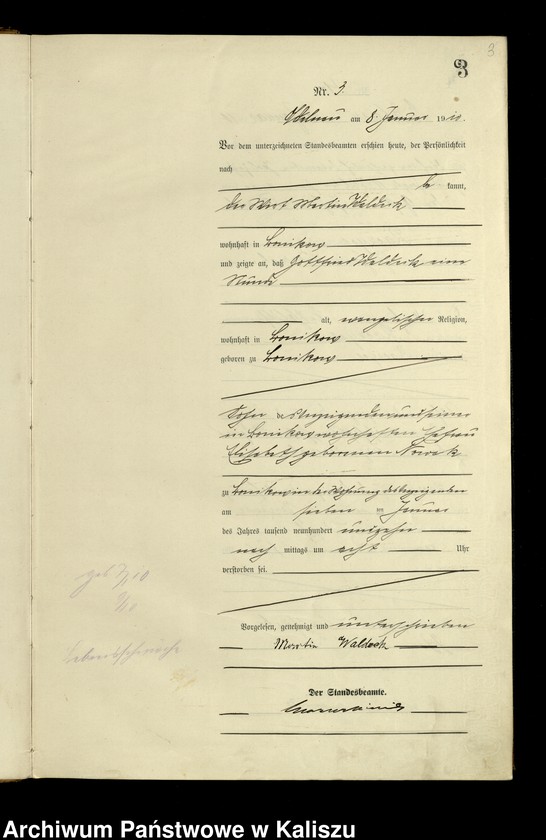 3
3
Nr. 3.
am 8. Januar 1910.
Vor dem unterzeichneten Standesbeamten erschien heute, der Persönlichkeit
nach
be kannt,
der Wirt Martin Waldeck
wohnhaft in
und zeigte an, daß Gottfried Waldeck eine
Stunde
alt, evangelischer Religion,
wohnhaft in
geboren zu
Sohn des Anzeigenden und seiner
in wohnhaften Ehefrau
Elisabeth geborenen Nowak
zu in der Wohnung des Anzeigenden
am sieben ten Januar
des Jahres tausend neunhundert und zehn
nach mittags um acht Uhr
verstorben sei.
Vorgelesen, genehmigt und unterschrieben
Martin Waldeck
Der Standesbeamte.
geb 7/1 10
Lebensschwäche
Archiwum Państwowe w Kaliszu